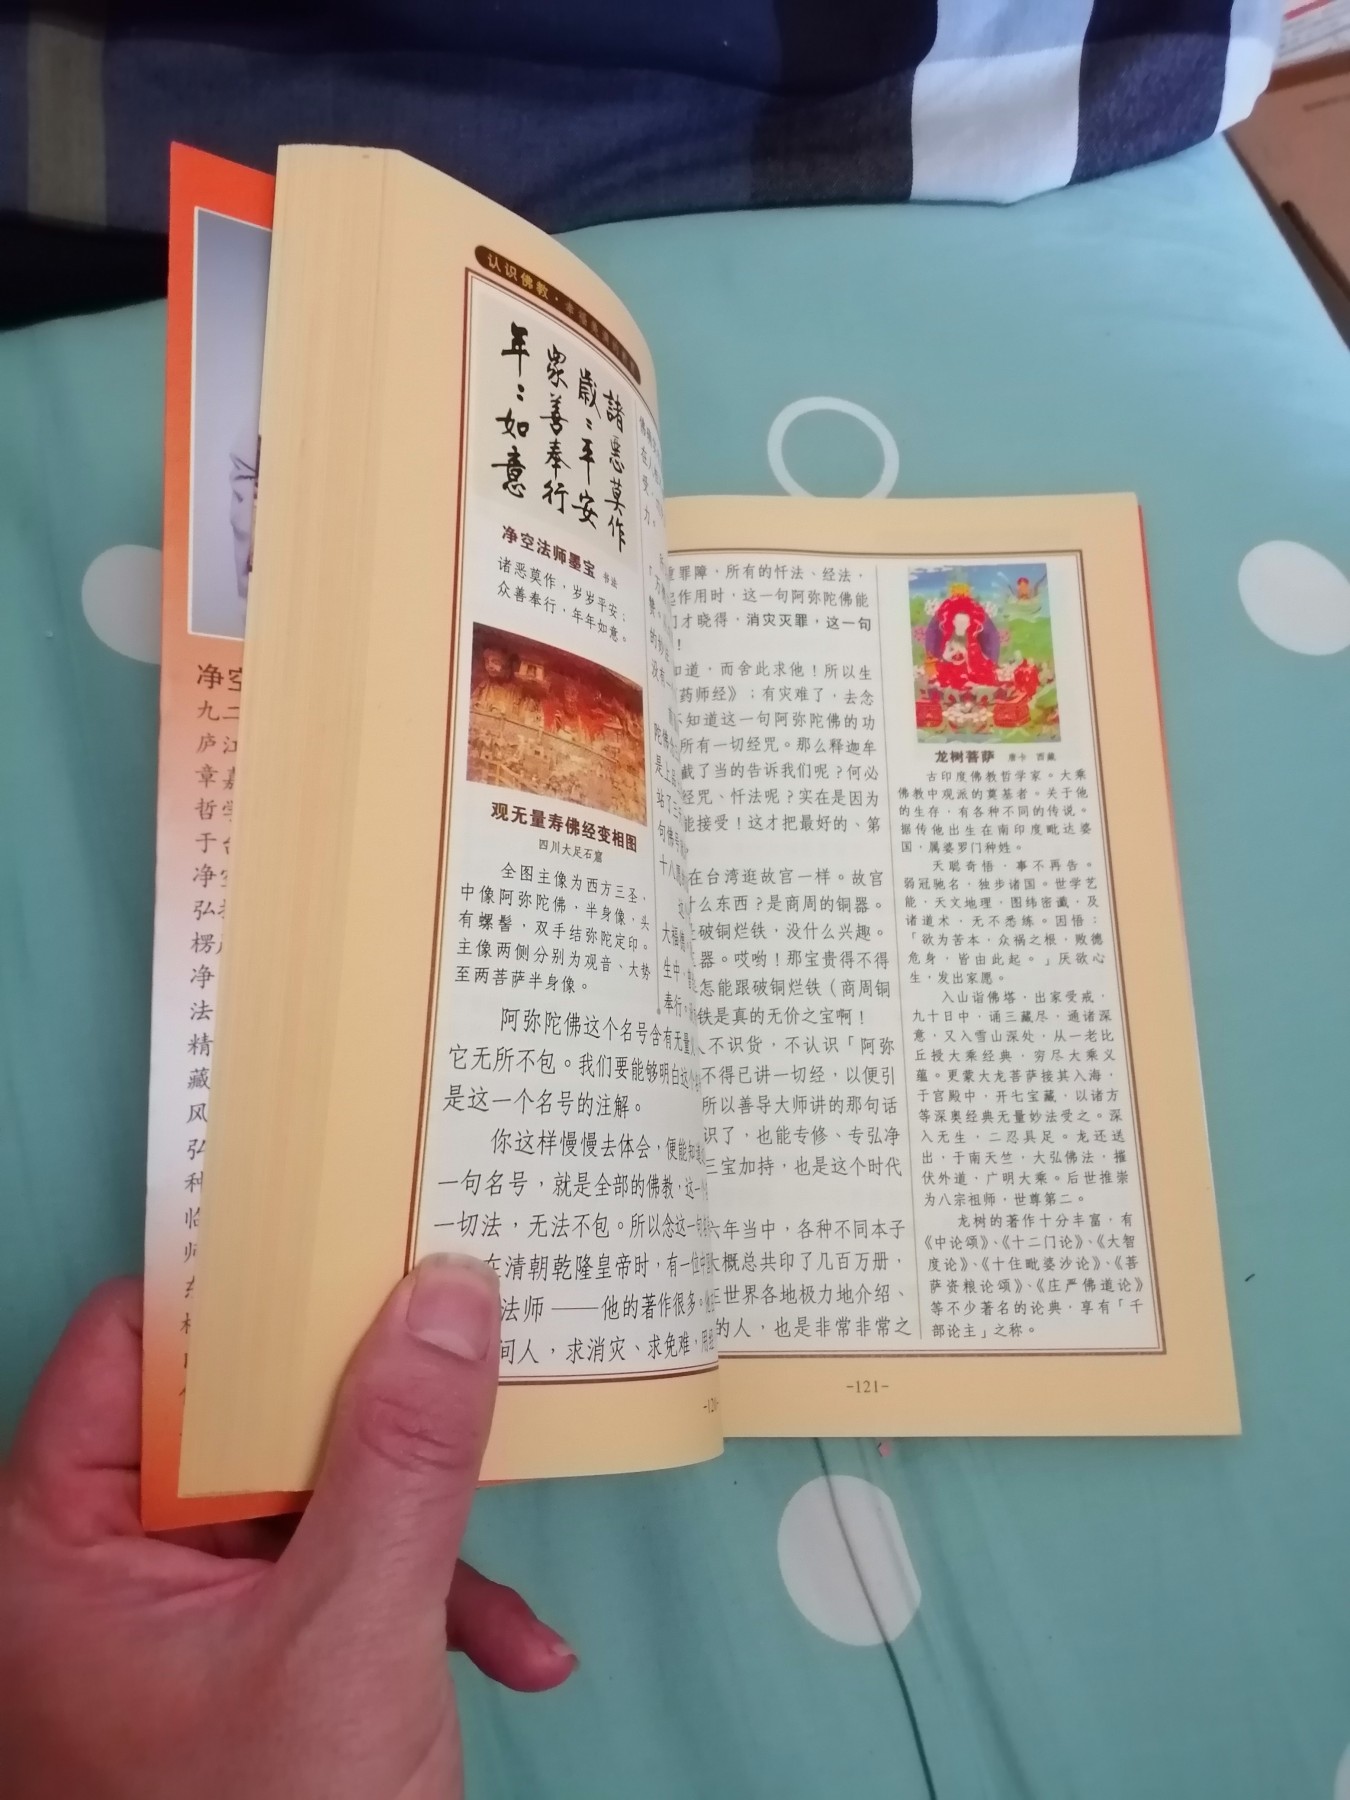 认识佛教·
諸恶莫作
歲二平安
眾善奉行
年二如意
净空法师墨宝 书法
诸恶莫作，岁岁平安；
众善奉行，年年如意。
观无量寿佛经变相图
四川大足石窟
全图主像为西方三圣，
中像阿弥陀佛，半身像，头
有螺髻，双手结弥陀定印。
主像两侧分别为观音、大势
至两菩萨半身像。
阿弥陀佛这个名号含有无量
它无所不包。我们要能够明白这个
是这一个名号的注解。
你这样慢慢去体会，便能知道
一句名号，就是全部的佛教，这一
一切法，无法不包。所以念这一句
在清朝乾隆皇帝时，有一位
法师——他的著作很多。
间人，求消灾、求免难，用
罪障，所有的忏法、经法，
起作用时，这一句阿弥陀佛能
才晓得，消灾灭罪，这一句
！
知道，而舍此求他！所以生
《药师经》；有灾难了，去念
不知道这一句阿弥陀佛的功
所有一切经咒。那么释迦牟
截了当的告诉我们呢？何必
经咒、忏法呢？实在是因为
能接受！这才把最好的、第
在台湾逛故宫一样。故宫
什么东西？是商周的铜器。
破铜烂铁，没什么兴趣。
器。哎哟！那宝贵得不得
怎能跟破铜烂铁（商周铜
铁是真的无价之宝啊！
不识货，不认识「阿弥
不得已讲一切经，以便引
所以善导大师讲的那句话
识了，也能专修、专弘净
三宝加持，也是这个时代
六年当中，各种不同本子
大概总共印了几百万册，
世界各地极力地介绍、
的人，也是非常非常之
龙树菩萨 唐卡 西藏
古印度佛教哲学家。大乘
佛教中观派的奠基者。关于他
的生存，有各种不同的传说。
据传他出生在南印度毗达婆
国，属婆罗门种姓。
天聪奇悟，事不再告。
弱冠驰名，独步诸国。世学艺
能，天文地理，图纬密谶，及
诸道术，无不悉练。因悟：
「欲为苦本，众祸之根，败德
危身，皆由此起。」厌欲心
生，发出家愿。
入山诣佛塔，出家受戒，
九十日中，诵三藏尽，通诸深
意，又入雪山深处，从一老比
丘授大乘经典，穷尽大乘义
蕴。更蒙大龙菩萨接其入海，
于宫殿中，开七宝藏，以诸方
等深奥经典无量妙法受之。深
入无生，二忍具足。龙还送
出，于南天竺，大弘佛法，摧
伏外道，广明大乘。后世推崇
为八宗祖师，世尊第二。
龙树的著作十分丰富，有
《中论颂》、《十二门论》、《大智
度论》、《十住毗婆沙论》、《菩
萨资粮论颂》、《庄严佛道论》
等不少著名的论典，享有「千
部论主」之称。
-121-
净空
九二
庐江
章嘉
哲学
于台
净空
弘
楞
净
法
精
藏
风
弘
种
临